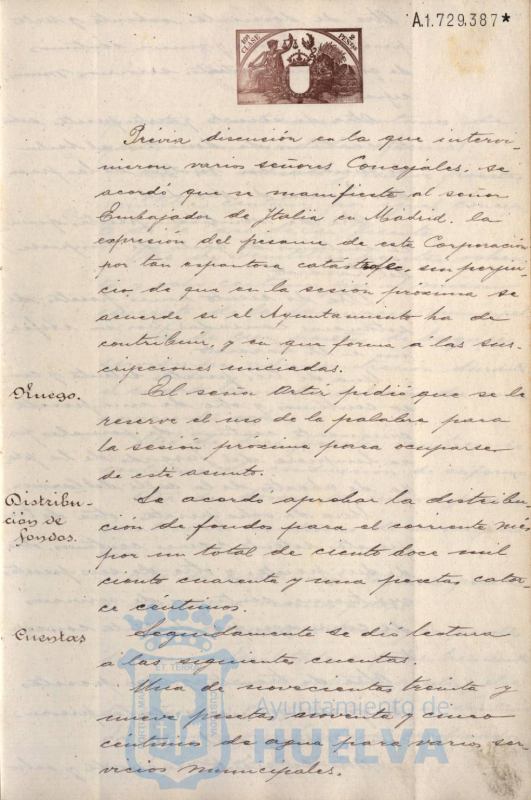 A.1.729,387*
10ª CLASE
2 PESETAS
Prévia discusión en la que intervi-
nieron varios señores Concejales, se
acordó que se manifieste al señor
Embajador de Italia en Madrid, la
expresión del pésame de esta Corporación
por tan espantosa catástrofe, sin perjui-
cio de que en la sesión próxima se
acuerde si el Ayuntamiento ha de
contribuir, y en que forma á las sus-
cripciones iniciadas.
Ruego.
El señor pidió que se le
reserve el uso de la palabra para
la sesión próxima para ocuparse
de este asunto.
Distribu-
ción de
fondos.
Se acordó aprobar la distribu-
ción de fondos para el corriente mes
por un total de ciento doce mil
ciento cuarenta y una pesetas cator-
ce céntimos.
Cuentas
Seguidamente se dió lectura
á las siguientes cuentas.
Una de novecientas treinta y
nueve pesetas noventa y cinco
céntimos de agua para varios ser-
vicios municipales.
Ayuntamiento de
HUELVA